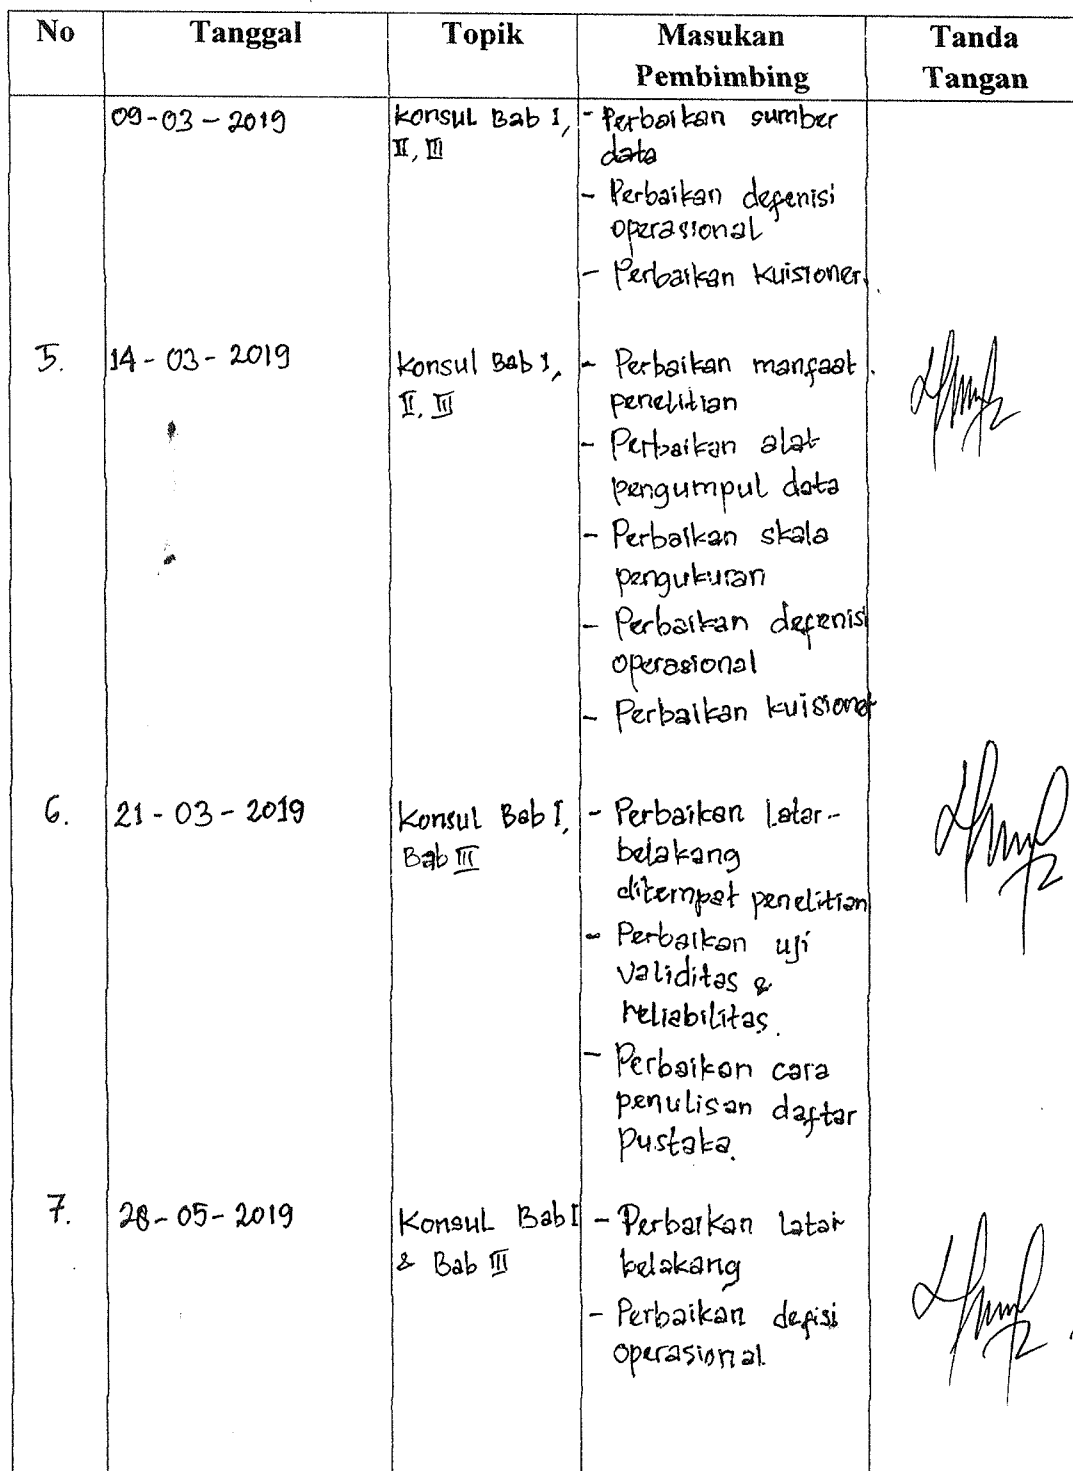 No Tanggal Topik Masukan Pembimbing Tanda Tangan
09-03-2019
Konsul Bab I,
II, III
- Perbaikan sumber
data
- Perbaikan defenisi
operasional
- Perbaikan kuisioner.
5.
14-03-2019
Konsul Bab I,
II, III
- Perbaikan manfaat
penelitian
- Perbaikan alat
pengumpul data
- Perbaikan skala
pengukuran
- Perbaikan defenisi
operasional
- Perbaikan kuisioner
6.
21-03-2019
Konsul Bab I,
Bab III
- Perbaikan Latar-
belakang
ditempat penelitian
- Perbaikan uji
validitas &
reliabilitas.
- Perbaikan cara
penulisan daftar
pustaka.
7.
28-05-2019
Konsul Bab I
& Bab III
- Perbaikan Latar
belakang
- Perbaikan defisi
operasional.